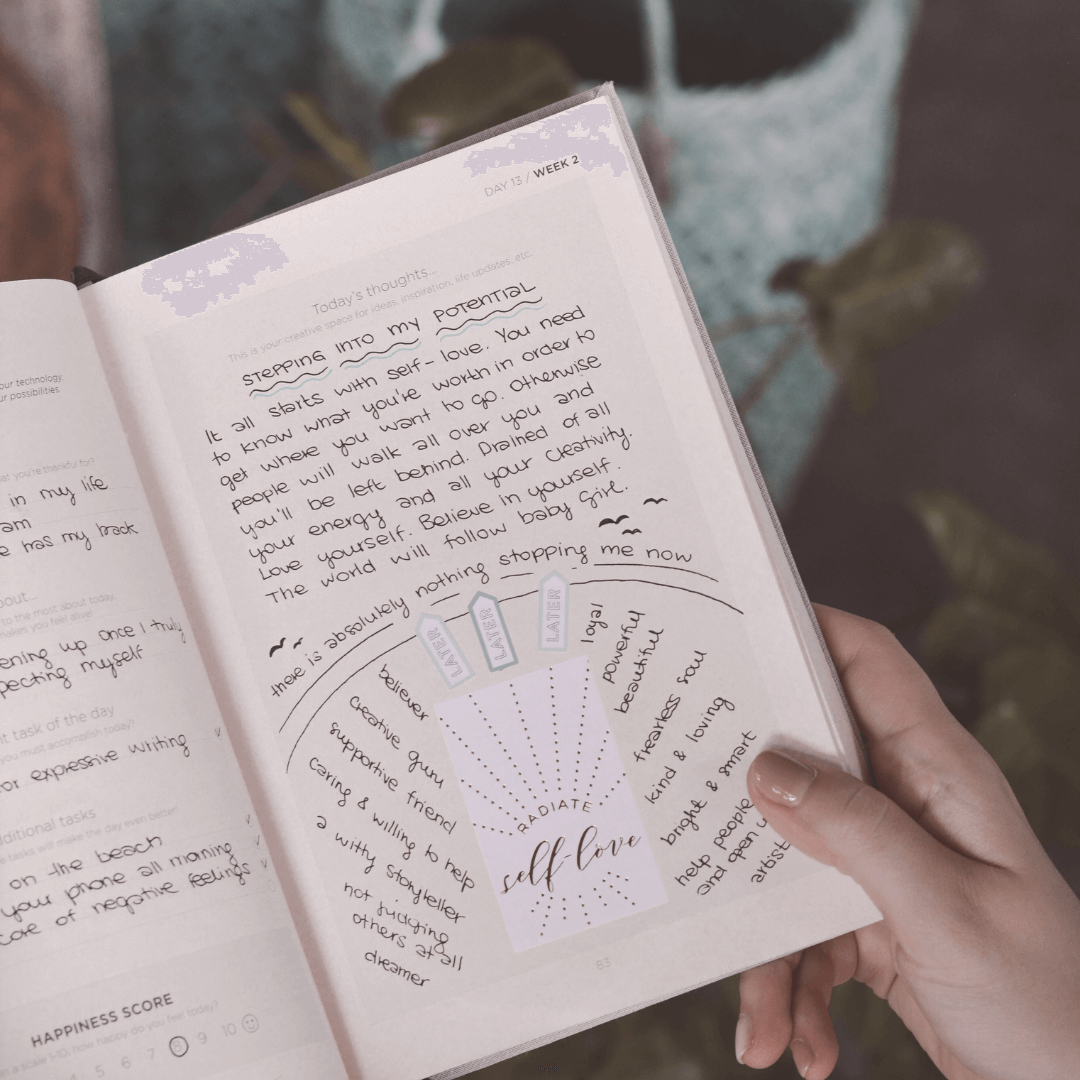 our technology.
ur possibilities.
what you're thankful for?
in my life
am
e has my back
bout...
to the most about today,
makes you feel alive!
ening up once I truly
pecting myself
nt task of the day
you must accomplish today?
or expressive writing
dditional tasks
e tasks will make the day even better!
on the beach
your phone all morning
core of negative feelings
HAPPINESS SCORE
n a scale 1-10, how happy do you feel today?
4 5 6 7 8 9 10
DAY 13 / WEEK 2
Today's thoughts...
This is your creative space for ideas, inspiration, life updates, etc.
STEPPING INTO MY POTENTIAL
It all starts with self-love. You need
to know what you're worth in order to
get where you want to go. Otherwise
people will walk all over you and
you'll be left behind. Drained of all
your energy and all your creativity.
Love yourself. Believe in yourself.
The world will follow baby girl.
there is absolutely nothing stopping me now
LATER
LATER
LATER
believer
creative guru
supportive friend
caring & willing to help
a witty storyteller
not judging
others at all
dreamer
RADIATE
self-love
loyal
powerful
beautiful
fearless soul
kind & loving
bright & smart
help people
and open u
artist
83